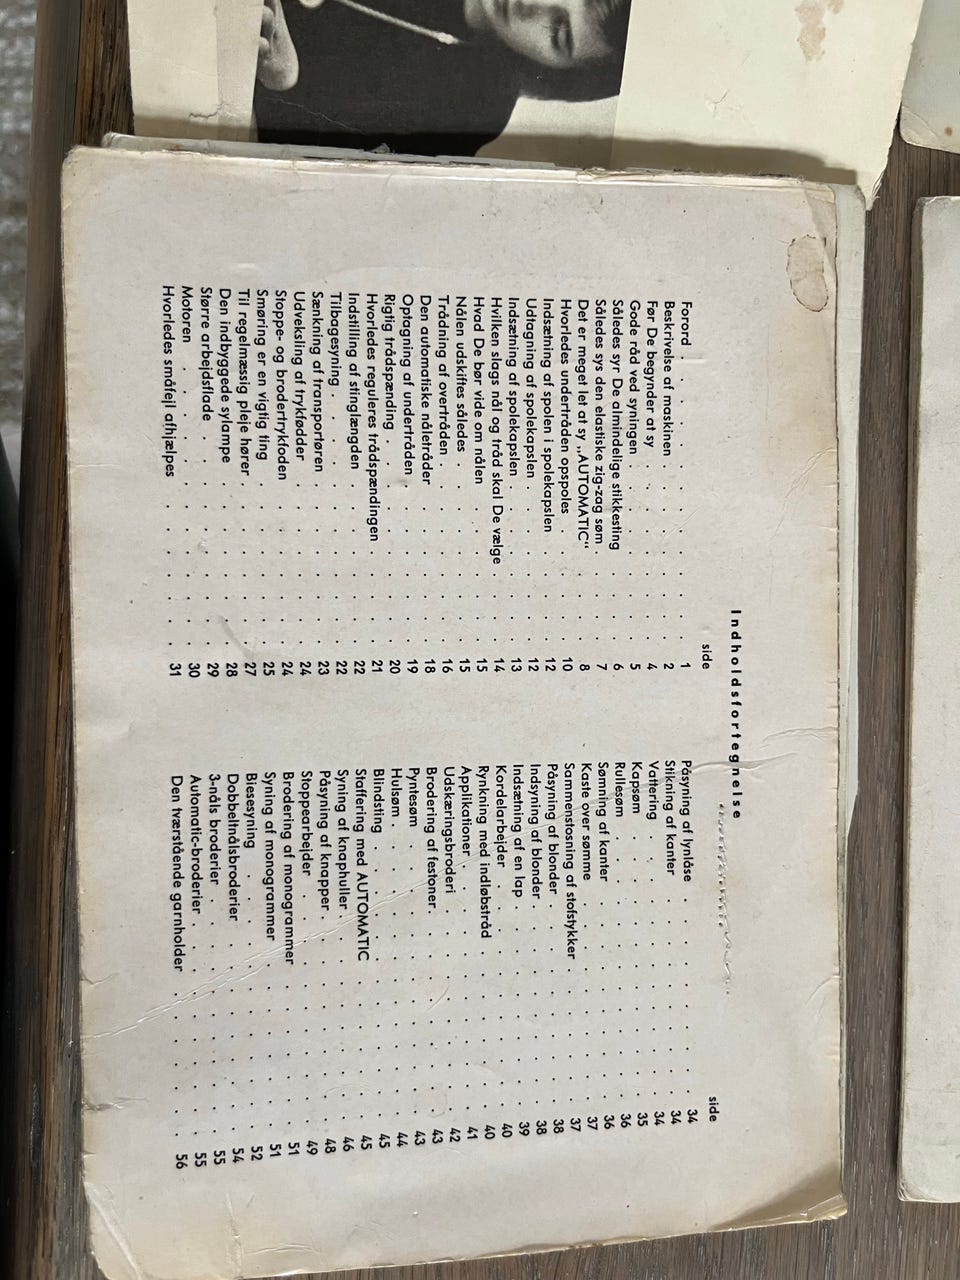 Indholdsfortegnelse
side
Forord . . . . . . . . . 1
Beskrivelse af maskinen . . . . . . 2
Før De begynder at sy . . . . . . 4
Gode råd ved syningen . . . . . . 5
Således syr De almindelige stikkesting . . . 6
Således sys den elastiske zig-zag søm . . . . 7
Det er meget let at sy „AUTOMATIC“ . . . 8
Hvorledes undertråden opspoles . . . . 10
Indsætning af spolen i spolekapslen . . . . 12
Udtagning af spolekapslen . . . . . 12
Indsætning af spolekapslen . . . . . 13
Hvilken slags nål og tråd skal De vælge . . . 14
Hvad De bør vide om nålen . . . . . 15
Nålen udskiftes således . . . . . . 15
Trådning af overtråden . . . . . . 16
Den automatiske nåletråder . . . . . 18
Optagning af undertråden . . . . . 19
Rigtig trådspænding . . . . . . . 20
Hvorledes reguleres trådspændingen . . . 21
Indstilling af stinglængden . . . . . 22
Tilbagesyning . . . . . . . . 22
Sænkning af transportøren . . . . . 23
Udveksling af trykfødder . . . . . . 24
Stoppe- og brodertrykfoden . . . . . 24
Smøring er en vigtig ting . . . . . 25
Til regelmæssig pleje hører . . . . . 27
Den indbyggede sylampe . . . . . 28
Større arbejdsflade . . . . . . . 29
Motoren . . . . . . . . . 30
Hvorledes småfejl afhjælpes . . . . 31
side
Påsyning af lynlåse . . . . . . 34
Stikning af kanter . . . . . . 34
Vattering . . . . . . . . 34
Kapsøm . . . . . . . . 35
Rullesøm . . . . . . . . 36
Sømning af kanter . . . . . . 36
Kaste over sømme . . . . . . 37
Sammenstosning af stofstykker . . . . 37
Påsyning af blonder . . . . . . 38
Indsyning af blonder . . . . . . 38
Indsætning af en lap . . . . . . 39
Kordelarbejder . . . . . . . 40
Rynkning med indløbstråd . . . . . 40
Applikationer . . . . . . . 41
Udskæringsbroderi . . . . . . 42
Brodering af festoner. . . . . . 43
Pyntesøm . . . . . . . . 43
Hulsøm . . . . . . . . . 44
Blindsting . . . . . . . . 45
Staffering med AUTOMATIC . . . . 45
Syning af knaphuller . . . . . . 46
Påsyning af knapper . . . . . . 48
Stoppearbejder . . . . . . . 49
Brodering af monogrammer . . . . 51
Syning af monogrammer . . . . . 51
Biesesyning . . . . . . . . 52
Dobbeltnålsbroderier . . . . . . 54
3-nåls broderier . . . . . . . 55
Automatic-broderier . . . . . . 55
Den tværstående garnholder . . . . 56